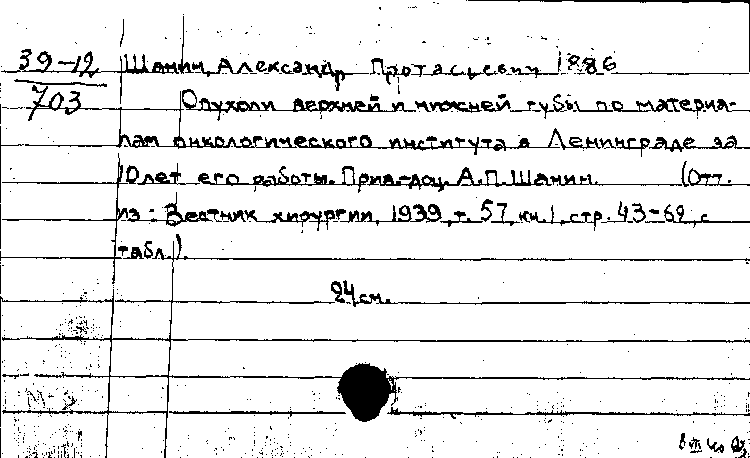 39-12
703
Шанин, Александр Протасьевич 1886
Опухоли верхней и нижней губы по материа-
лам онкологического института в Ленинграде за
10 лет его работы. Прив.-доц. А.П. Шанин. (Отт.
из: Вестник хирургии, 1939, т. 57, кн. 1, стр. 43-69, с
табл.).
24 см.